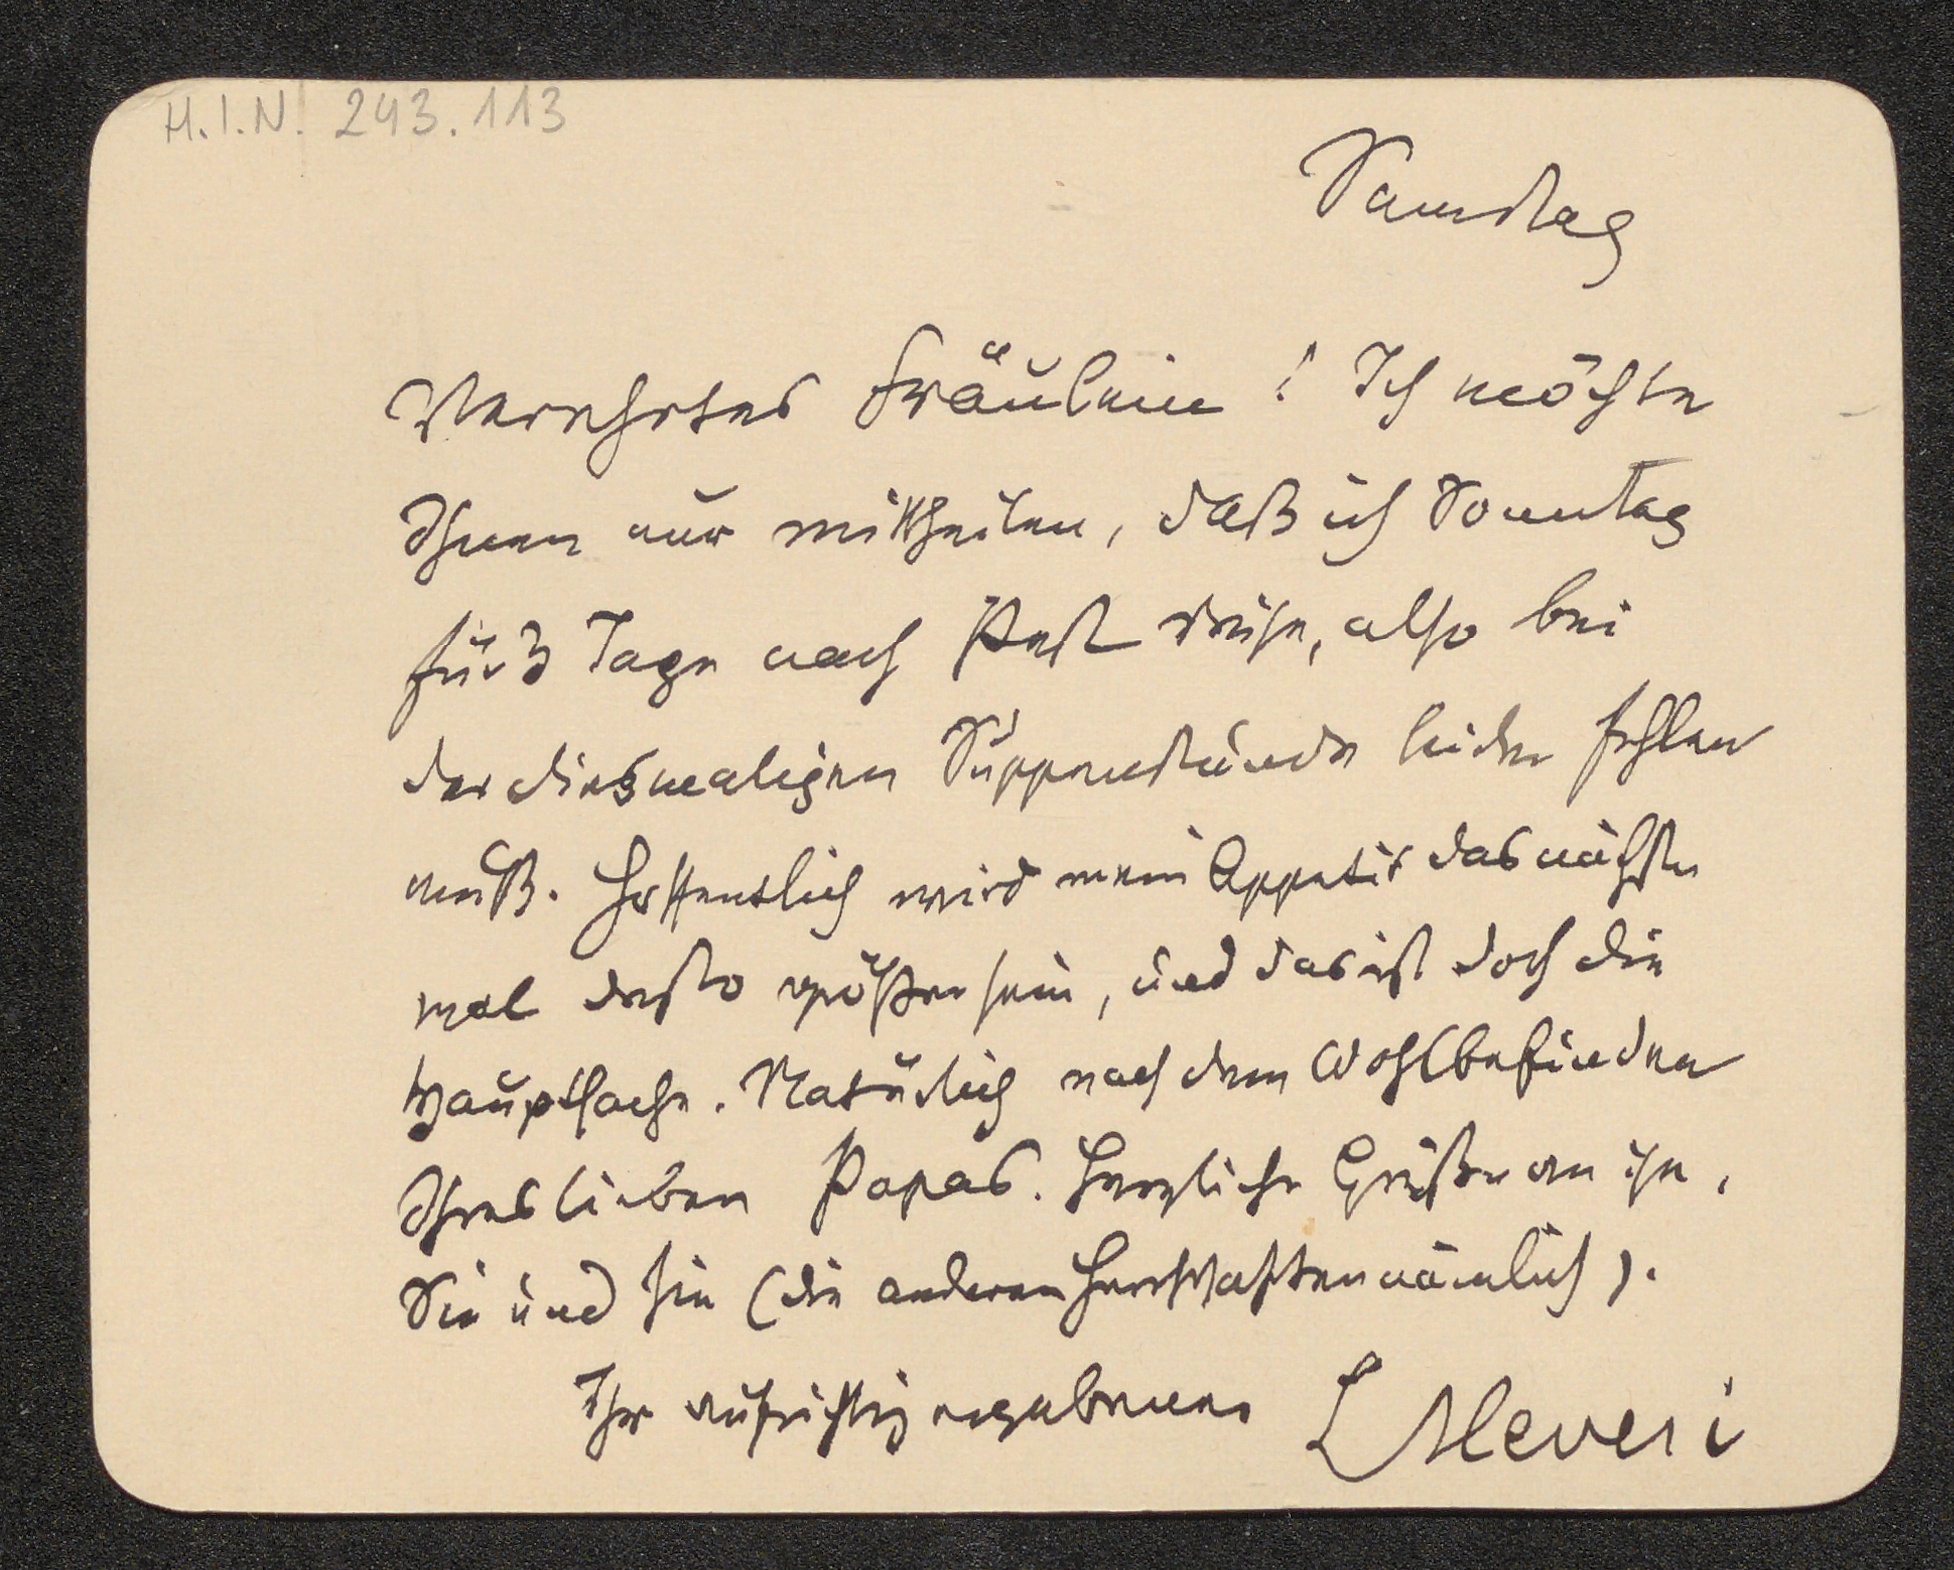 H.I.N. 243.113
Samstag
Verehrtes Fräulein! Ich möchte
Ihnen nur mittheilen, daß ich Sonntag
für 3 Tage nach Pest reise, also bei
der diesmaligen Suppenstunde leider fehlen
muß. Hoffentlich wird mein Appetit das nächste
mal desto größer sein, und das ist doch die
Hauptsache. Natürlich nach dem Wohlbefinden
Ihres lieben Papas. Herzliche Grüße an ihn,
Sie und sie (die anderen Herrschaften nämlich).
Ihr aufrichtig ergebener L Hevesi